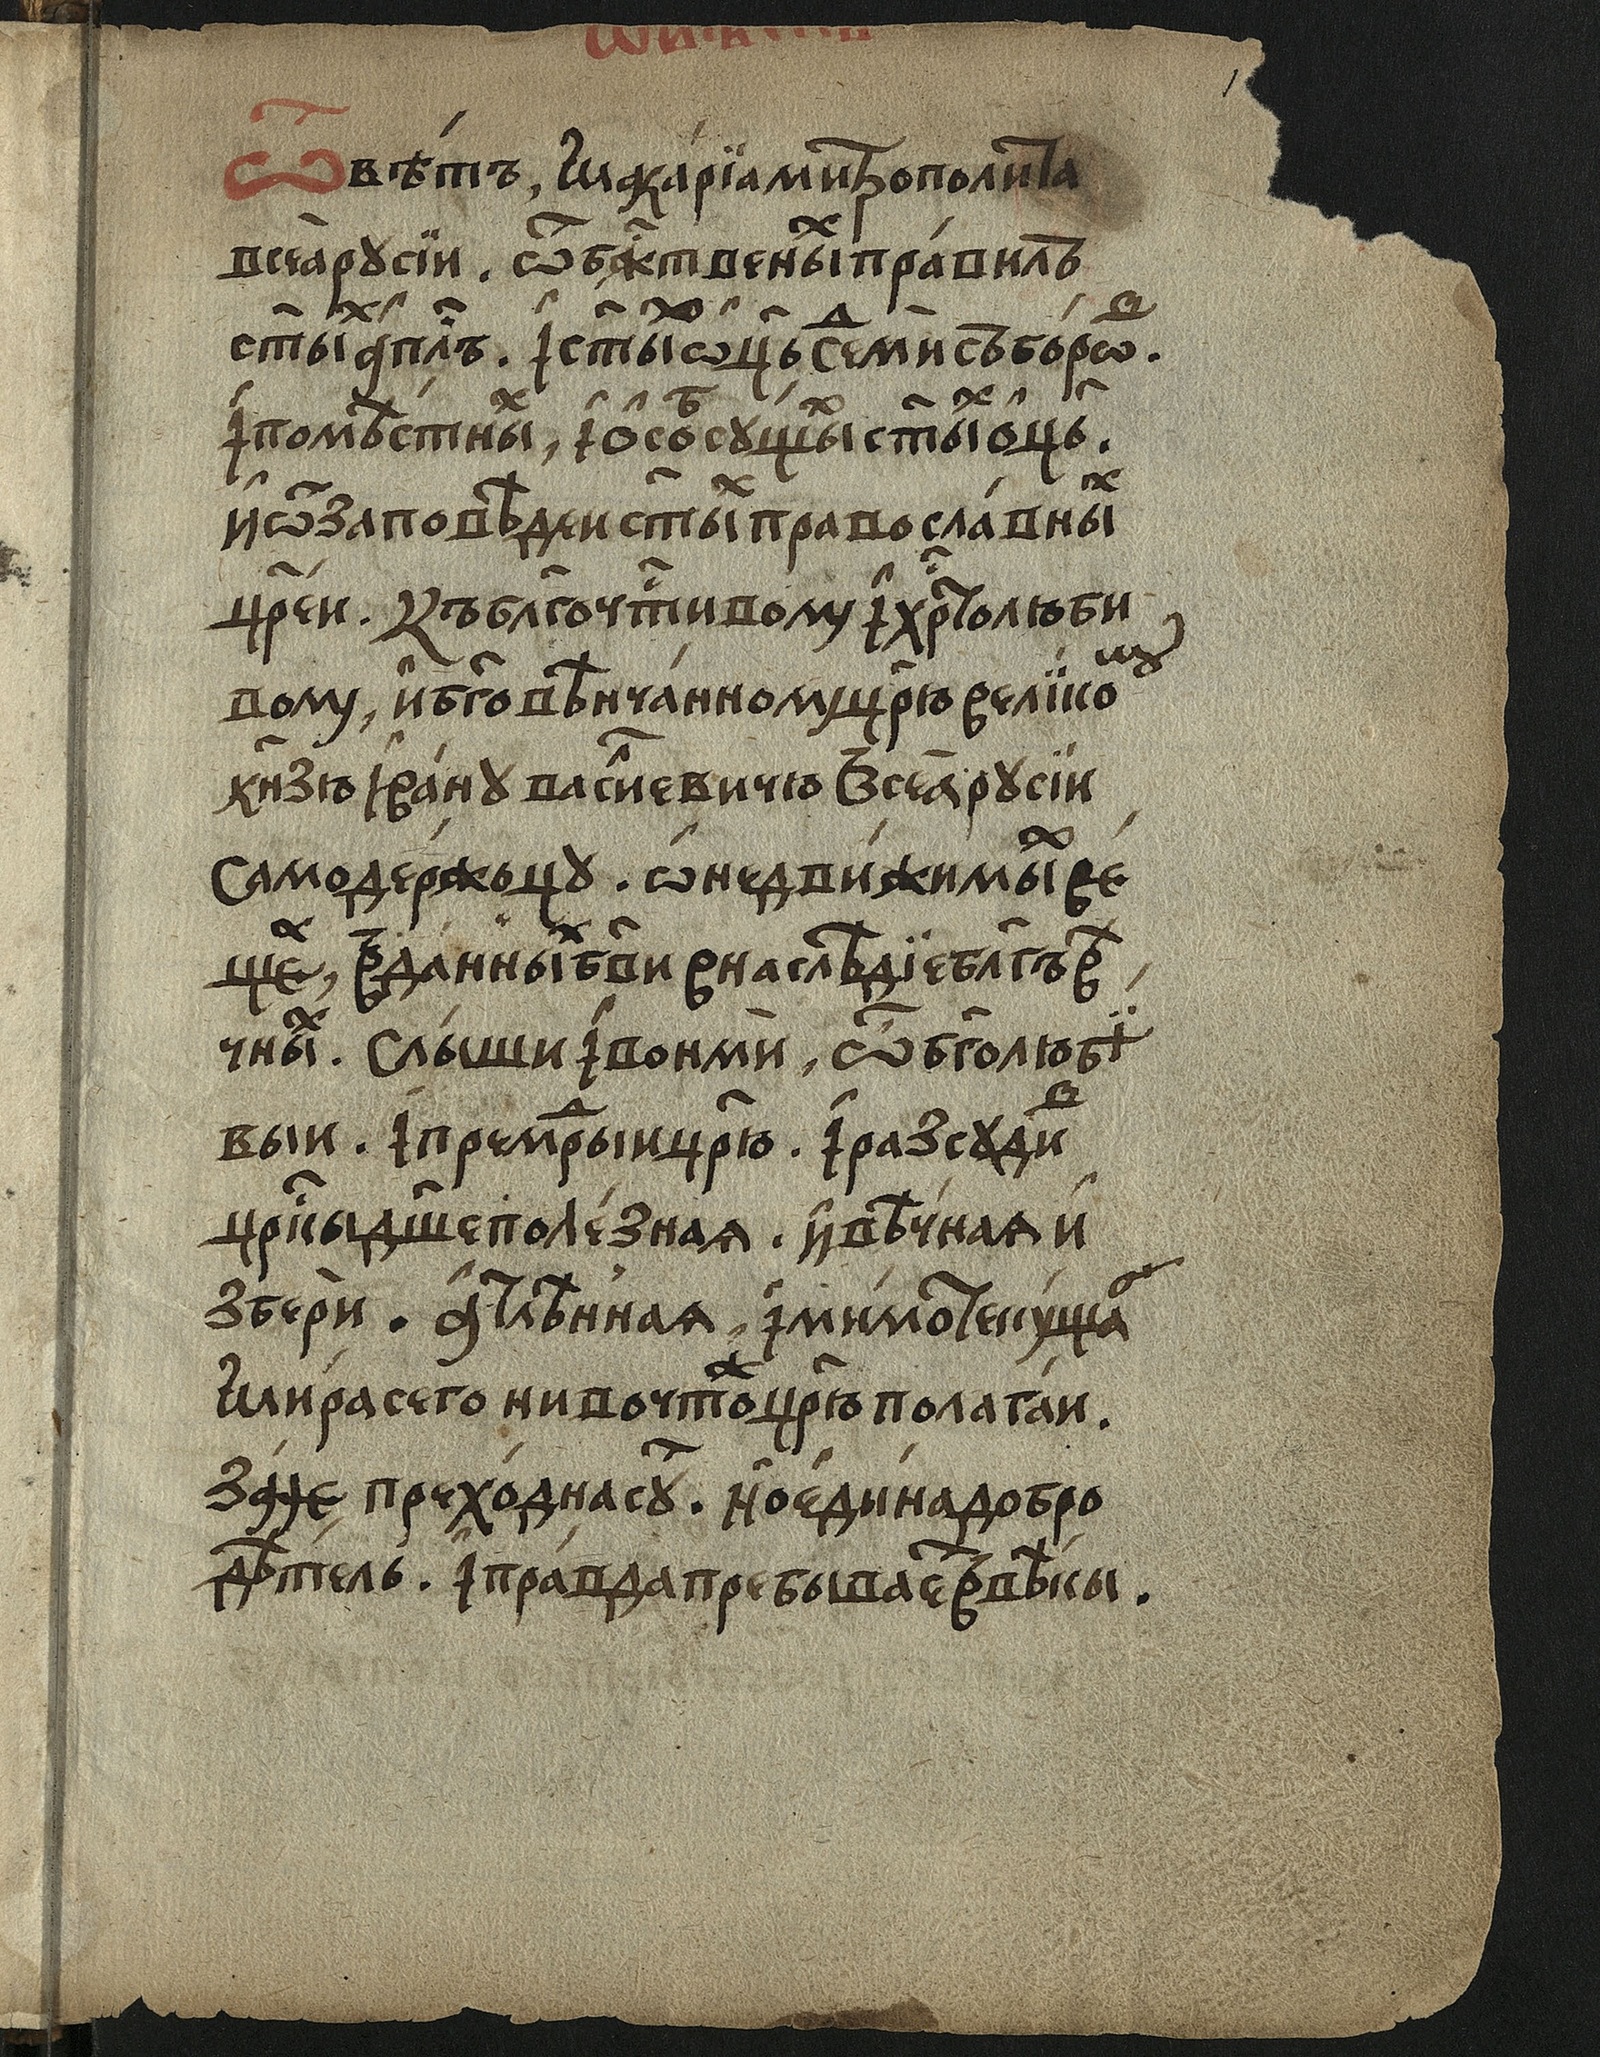 Ѿвѣ́тъ, Мака́рїа митрополи́та
всеа̀ рꙋсїи. ѿ бж҃твены́хъ пра́вилъ
ст҃ы́хъ а҆пⷭ҇лъ. і҆ ст҃ы́хъ ѻ҆ц҃ъ седмѝ събо́рѡⷡ.
і҆ помѣ́стныⷯ, і҆ ѻ҆со́бъ сꙋ́щиⷯ ст҃ы́ⷯ ѻ҆ц҃ъ.
и҆ ѿ заповѣ́деи ст҃ы́ⷯ правосла́вныⷯ
цр҃е́и. Къ бл҃гочⷭ҇ти́вому і҆ хрⷭ҇толюби
вому, и҆ бг҃овѣнча́нному цр҃ю̀ вели́комꙋ
кн҃зю і҆ва́нꙋ васи́лⷭ҇евичю всеа̀ рꙋсїи
самоде́ржьцꙋ. ѡ҆ недви́жимыⷯ ве́
щеⷯ, вда́нныⷯ бг҃ви в наслѣ́дїе бл҃гъ вѣ́
чныⷯ. Слы́ши і҆ вонмѝ, ѽ бг҃олюбї
выи. і҆ прему́дрⷣыи цр҃ю̀. і҆ разсꙋди́въ
црⷭ҇кы дш҃еполе́зная. и҆ вѣ́чная и҆
зберѝ. а҆ тлѣ́нная, і҆ мимотеку́щаѧ
Ми́ра сего̀ ни во чтоⷤ цр҃ю̀ полага́и.
За́не прехо́дна сꙋ́т. Но̀ е҆ди́на добро
дѣ́тель. і҆ пра́вда пребыва́ет в вѣ́кы.